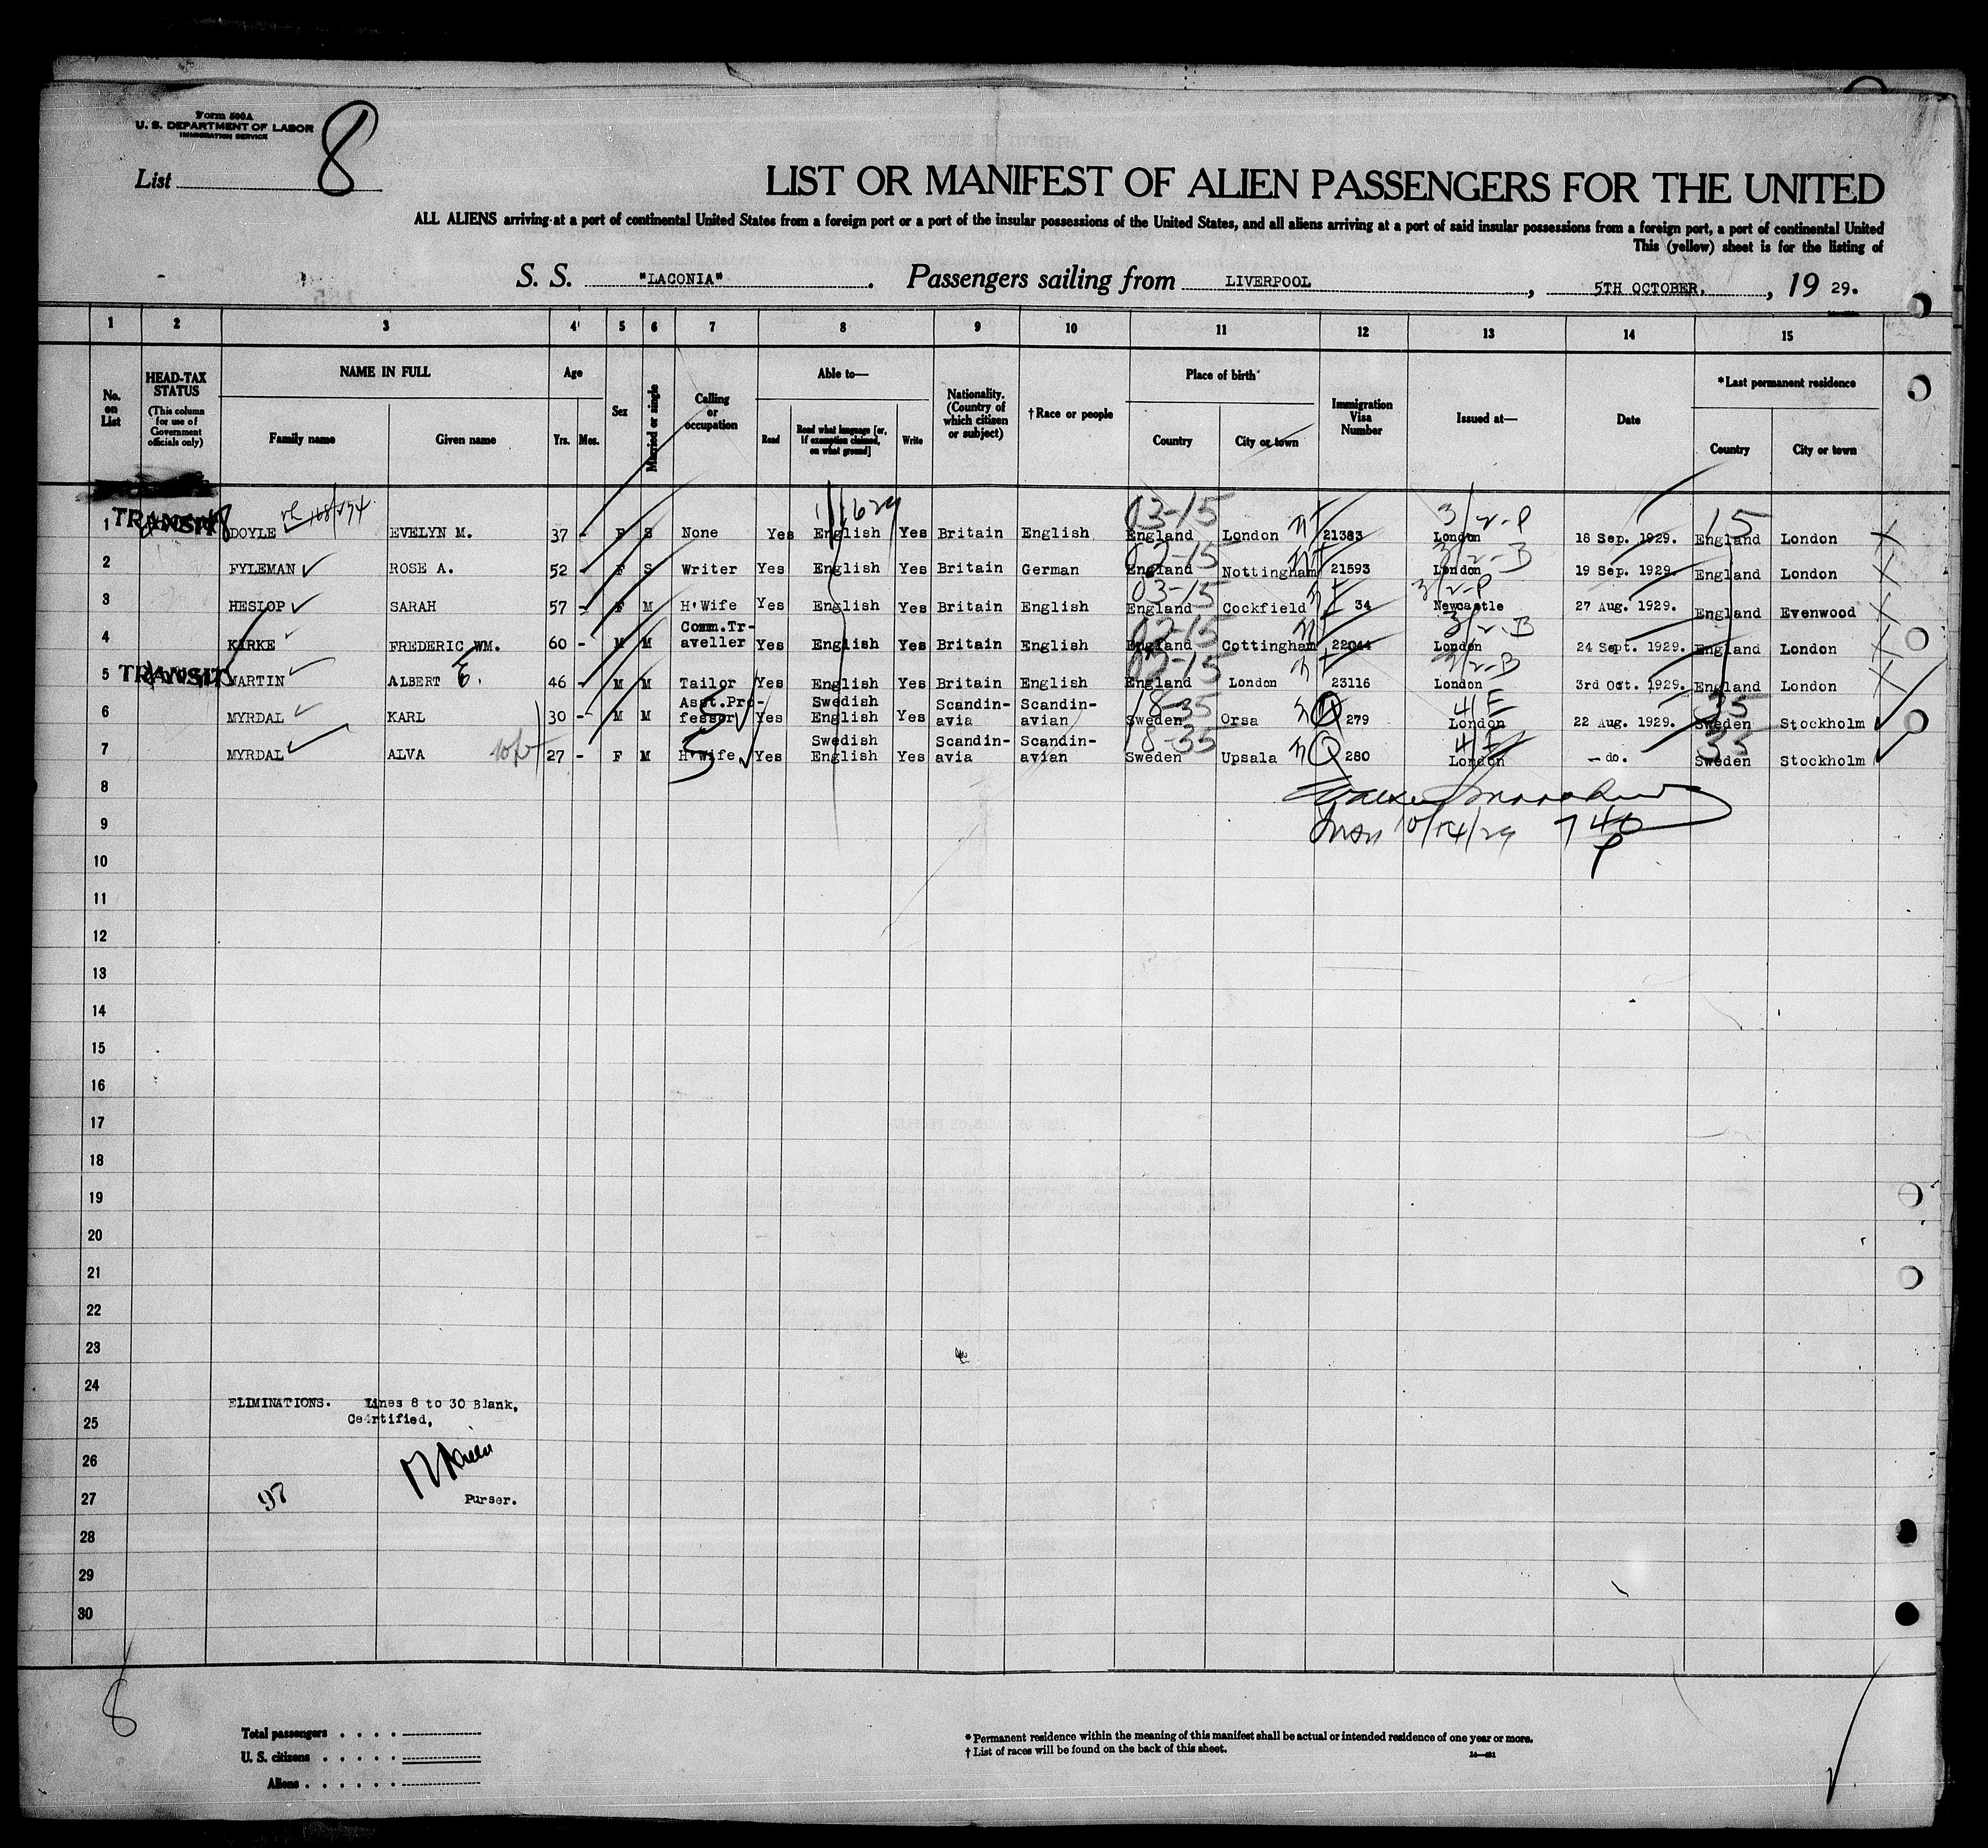 Form 500A
U. S. DEPARTMENT OF LABOR
IMMIGRATION SERVICE
List 8
LIST OR MANIFEST OF ALIEN PASSENGERS FOR THE UNITED
ALL ALIENS arriving at a port of continental United States from a foreign port or a port of the insular possessions of the United States, and all aliens arriving at a port of said insular possessions from a foreign port, a port of continental United
This (yellow) sheet is for the listing of
S. S. "LACONIA". Passengers sailing from LIVERPOOL, 5TH OCTOBER, 19 29.
1 2 3 4 5 6 7 8 9 10 11 12 13 14 15
No. on List
HEAD-TAX STATUS (This column for use of Government officials only)
NAME IN FULL
Family name
Given name
Age
Yrs. Mos.
Sex
Married or single
Calling or occupation
Able to—
Read
Read what language [or, if exemption claimed, on what ground]
Write
Nationality. (Country of which citizen or subject)
†Race or people
Place of birth
Country
City or town
Immigration Visa Number
Issued at—
Date
*Last permanent residence
Country
City or town
03-15 3/2-P 15
1 TRANSIT DOYLE EVELYN M. 37 - F S None Yes English Yes Britain English England London 21383 London 18 Sep. 1929. England London
2 FYLEMAN ROSE A. 52 - F S Writer Yes English Yes Britain German England Nottingham 21593 London 19 Sep. 1929. England London
03-15 3/2-P
3 HESLOP SARAH 57 - F M H'Wife Yes English Yes Britain English England Cockfield 34 Newcastle 27 Aug. 1929. England Evenwood
3/2-B
4 KIRKE FREDERIC WM. 60 - M M Comm.Traveller Yes English Yes Britain English England Cottingham 22044 London 24 Sept. 1929. England London
3/2-B
5 TRANSIT MARTIN ALBERT E. 46 - M M Tailor Yes English Yes Britain English England London 23116 London 3rd Oct. 1929. England London
18-35 4/E 35
6 MYRDAL KARL 30 - M M Asst.Pro-fessor Yes Swedish English Yes Scandin-avia Scandin-avian Sweden Orsa 279 London 22 Aug. 1929. Sweden Stockholm
18-35 4/E 35
7 MYRDAL ALVA 27 - F M H'Wife Yes Swedish English Yes Scandin-avia Scandin-avian Sweden Upsala 280 London - do. Sweden Stockholm
8
9 10/14/29 7 40
10 P
11
12
13
14
15
16
17
18
19
20
21
22
23
24
ELIMINATIONS. Lines 8 to 30 Blank,
25 Certified,
26
27 97 Purser.
28
29
30
8
Total passengers
U. S. citizens
Aliens
* Permanent residence within the meaning of this manifest shall be actual or intended residence of one year or more.
† List of races will be found on the back of this sheet.